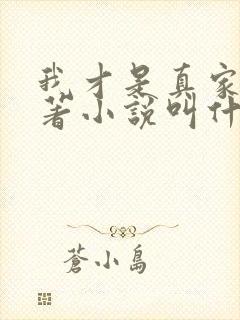 我才是真家
著小說叫什
蒼小島